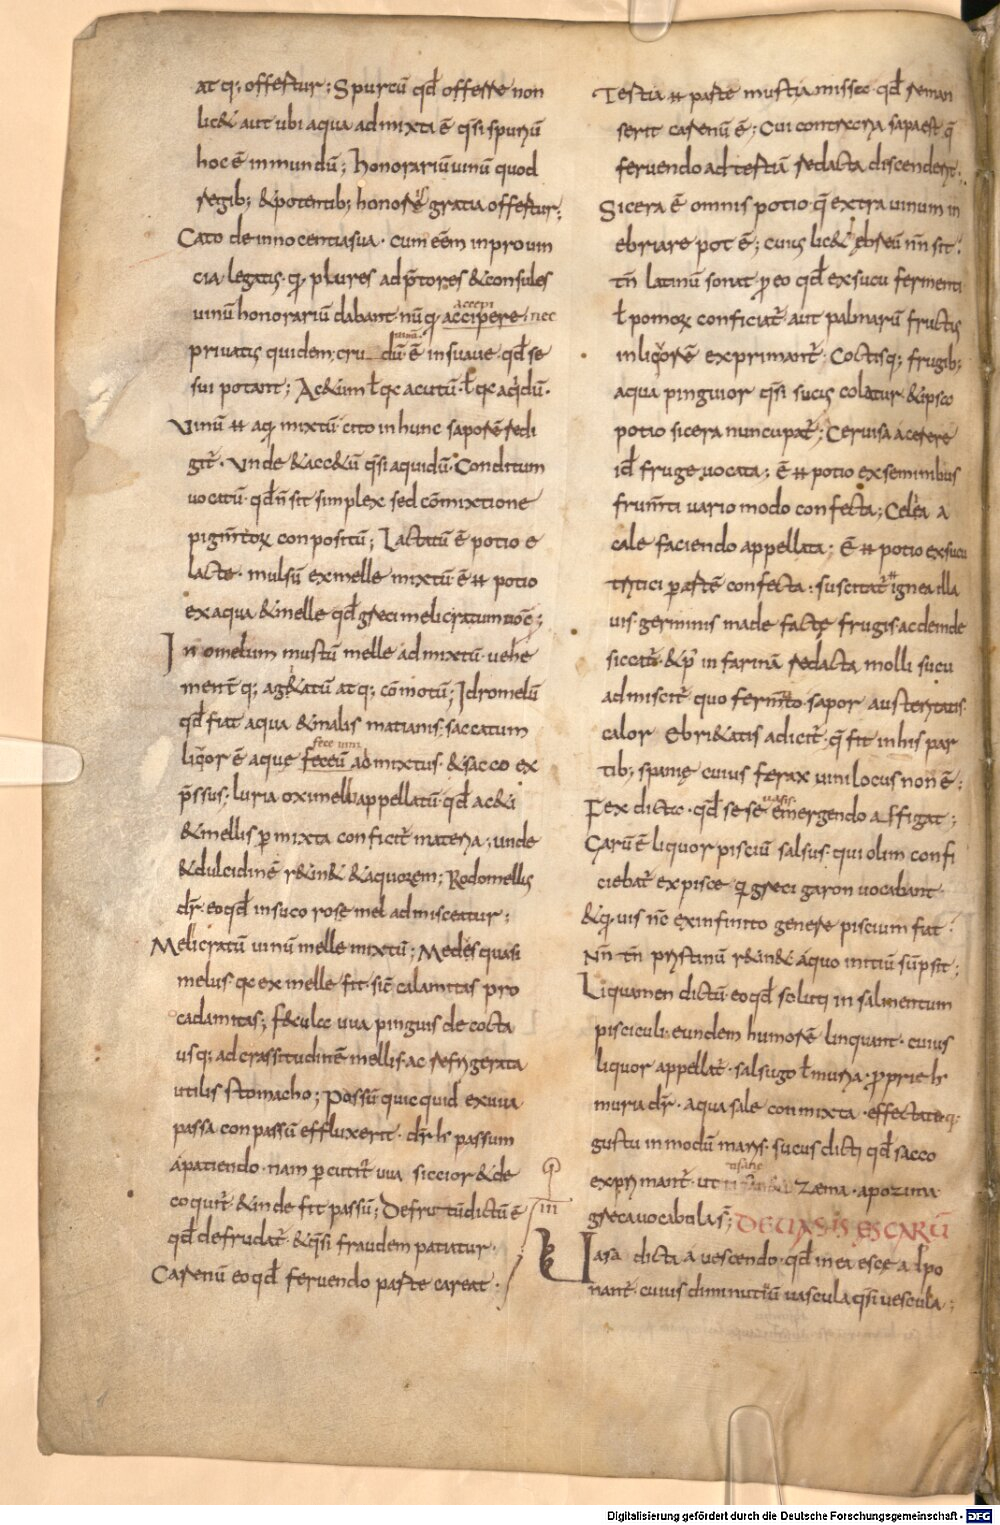 atq; offertur; Spurcū qđ offerre non
lic& aut ubi aqua admixta ē q̄si spuriū
hoc ē inmundū; honorariū uinū quod
regib; & potentib; honoris gratia offertur;
Cato de innocentia sua · cum eēm in prouin
cia legatus · q; plures ad p̄tores & consules
uinū honorariū dabant · nūq; accipere · nec
accepi
priuatus quidem; cru dū ē insuaue · qđ se
sui potant; Ac&um ł q̄ acutū · ł q̄ aq̄dū ·
Vinū ̄ aq; mixtū cito in hunc saporē redi
git̄ · Vnde & acc&ū q̄si aquidū · Conditum
uocatū · qđ n̄ sit simplex sed cōmixtione
pigm̄torꝝ conpositū; Lactatū ē potio e
lacte · mulsū ex melle mixtū ē ̄ potio
ex aqua & melle qđ greci melicratum uoc̄;
In omelium mustū melle admixtū uehe
ment̄ q; agi&atū atq; cōmotū; Idromelū
qđ fiat aqua & malis matianis · saccatum
liq̄or ē aque feceū admixtus · & sacco ex
fece uini
p̄ssus; luria oximell appellatū qđ ac&i
& mellis p̄mixta conficit̄ materia; unde
& dulcidinē r&in& & aquorem; Rodomellū
dr̄ · eo qđ in suco rose mel admisceatur;
Melicratū uinū melle mixtū; Medus quasi
melus · q̄ ex melle fit · sic̄ calamitas pro
cadamitas; feculcc uua pinguis decocta
usq; ad crassitudinē mellis · ac refrigerata
utilis stomacho; Passū quicquid ex uua
passa conpassū effluxerit · dr̄ h̄ passum
a patiendo · nam p̄cutit̄ uua siccior & de
coquit̄ & inde fit passū; Defrutū dictū ē
qđ defrudat̄ · & q̄si fraudem patiatur ·
Carenū eo qđ feruendo parte careat ·
Tertia ̄ parte musti amissa · qđ reman
serit carenū ē; Cui contraria sapa est q̄
feruendo ad tertiā redacta discenderit ·
Sicera ē omnis potio q̄ extra uinum in
ebriare pot ē; cuius lic& ebreū nn̄ sit ·
tn̄ latinū sonat p eo qđ ex sucu fermenti
ł pomorꝝ conficiat̄ aut palmarū fructus
in liq̄orē exprimant̄ · Coctisq; frugib;
aqua pinguior q̄si sucus colatur & ipsa
potio sicera nuncupat̄; Ceruisa a cerere
id̄ fruge uocata; ē ̄ potio ex seminibus
frum̄ti uario modo confecta; Celia a
cale faciendo appellata; ē ̄ potio ex sucu
tritici p artē confecta · suscitat̄ ignea illa
uis germinis made facte frugis ac deinde
siccat̄ · & p' in farinā redacta molli sucu
admiscit̄ quo ferm̄to sapor austeritatis
calor ebri&atis adicit̄ · q̄ fit in his par
tib; spanie cuius ferax uini locus non ē;
Fex dicta · qđ se se emergendo affigat;
uasis
Garū ē liquor pisciū salsus · qui olim confi
ciebat̄ ex pisce q̄ greci garon uocabant
& q; uis nc̄ ex infinito genere piscium fiat ·
nn̄ tn̄ pristinū r&in& a quo initiū sūpsit;
Liquamen dictū eo qđ soluti in salmentum
pisciculi eundem humorē linquant · cuius
liquor appellat̄ · salsugo ł muria · proprie h̄
muria dr̄ · aqua sale conmixta · effectaq;
gustu in modū maris · sucus dicti qđ sacco
exprimant̄ · ut Zema · apozima
tisane
greca uocabula s̄; DE UASIS ESCARIIS
Uasa dicta a uescendo · qđ in ea esce adpo
nant̄ · cuius diminutiuū uascula q̄si uescula;
III
Digitalisierung gefördert durch die Deutsche Forschungsgemeinschaft - DFG